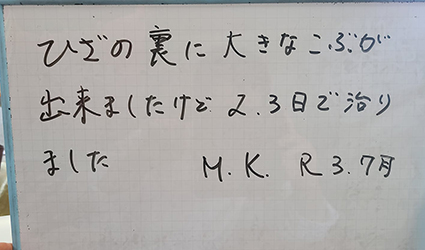 ひざの裏に大きなこぶが
出来ましたけど 2.3日で治り
ました M.K. R3.7月